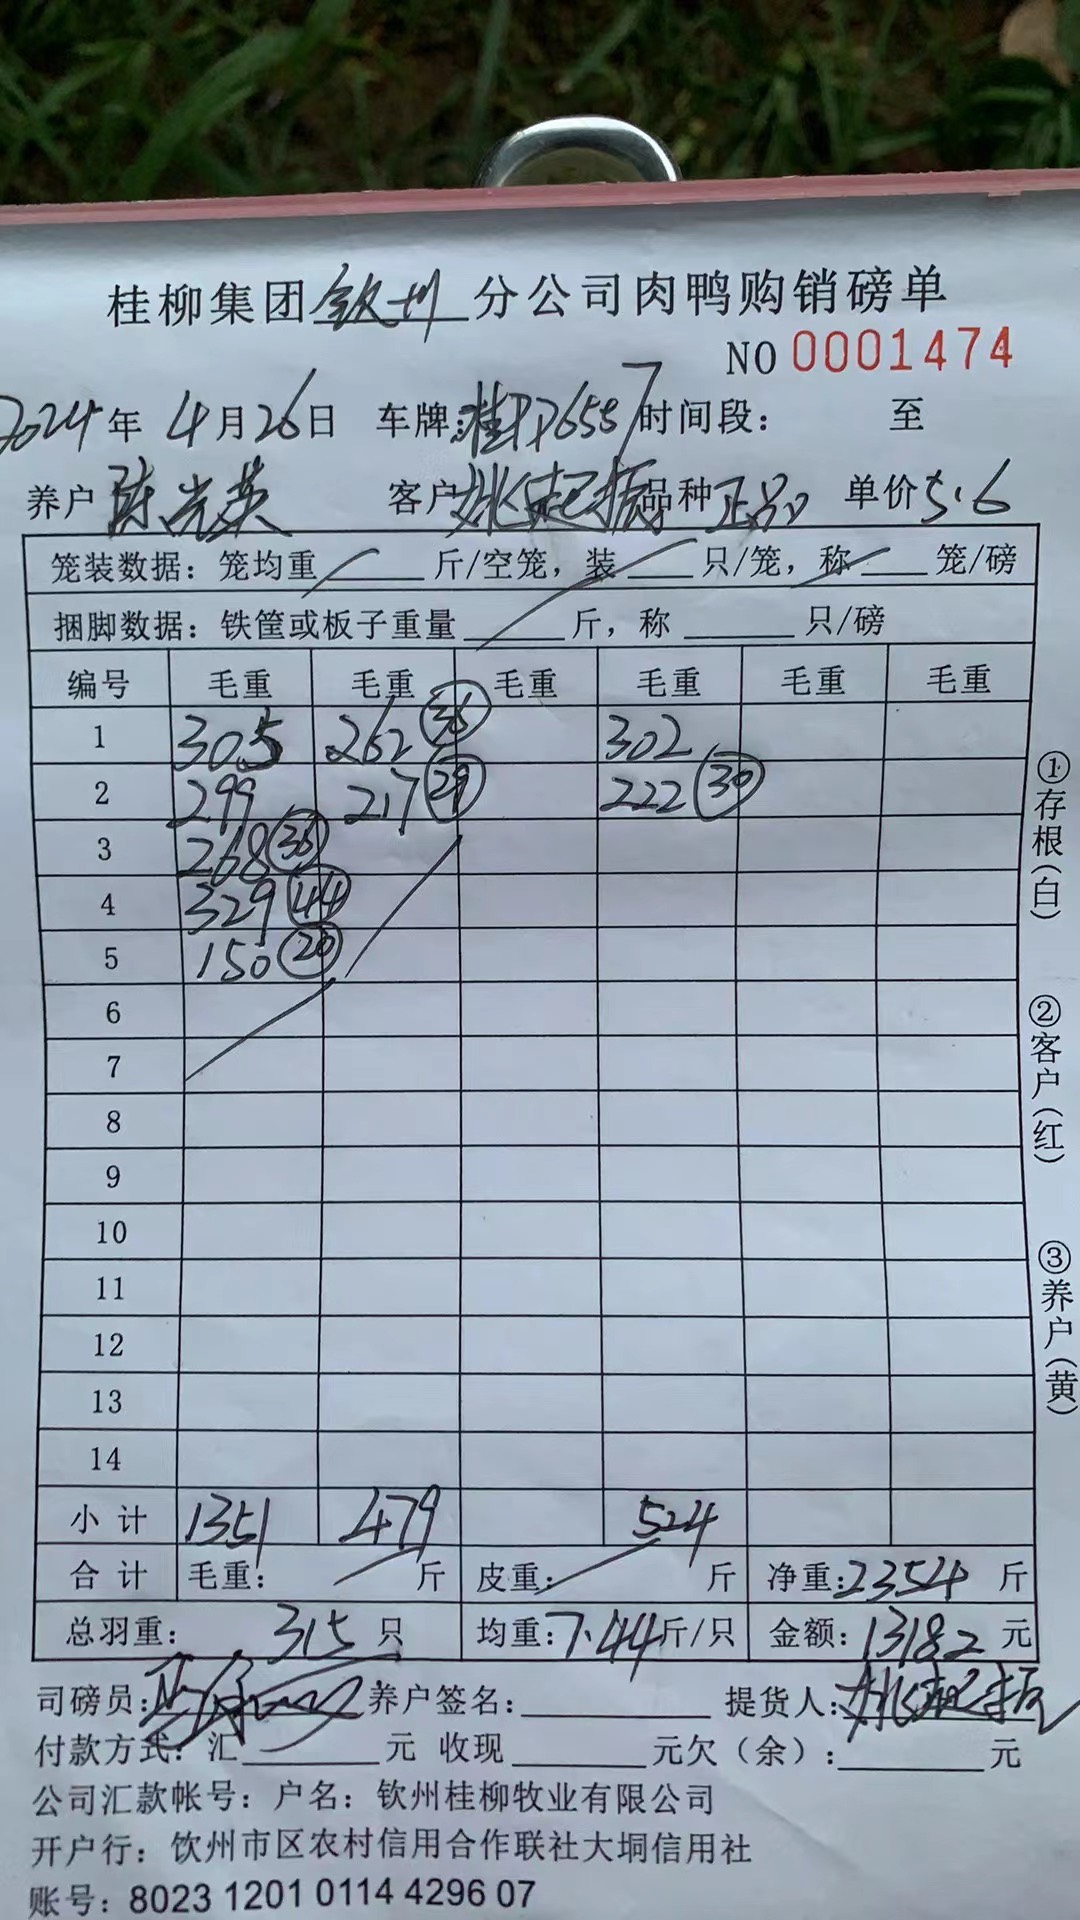 桂柳集团钦州分公司肉鸭购销磅单
NO 0001474
2024年 4月26日 车牌: 时间段: 至
养户 陈光英 客户 姚起振 品种 正品 单价 5.6
笼装数据: 笼均重 斤/空笼, 装 只/笼, 称 笼/磅
捆脚数据: 铁筐或板子重量 斤, 称 只/磅
编号 毛重 毛重 毛重 毛重 毛重 毛重
1 305 262 302
2 299 217 29 222 30
3 268
4 329 44
5 150 20
6
7
8
9
10
11
12
13
14
小计 1351 479 524
合计 毛重: 斤 皮重: 斤 净重: 2354 斤
总羽重: 315 只 均重: 7.44 斤/只 金额: 13182 元
司磅员: 养户签名: 提货人: 姚起振
付款方式: 汇 元 收现 元欠(余): 元
公司汇款帐号: 户名: 钦州桂柳牧业有限公司
开户行: 钦州市区农村信用合作联社大垌信用社
账号: 8023 1201 0114 4296 07
①存根(白)
②客户(红)
③养户(黄)